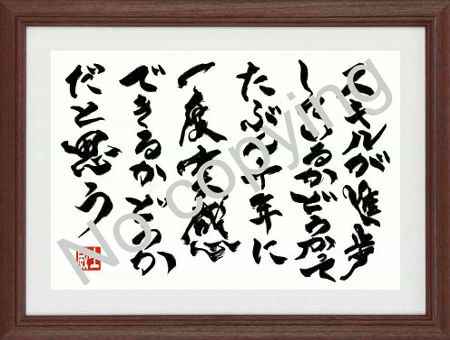 スキルが進歩
しているかどうかって
たぶん十年に
一度実感
できるかどうか
だと思う。
No copying